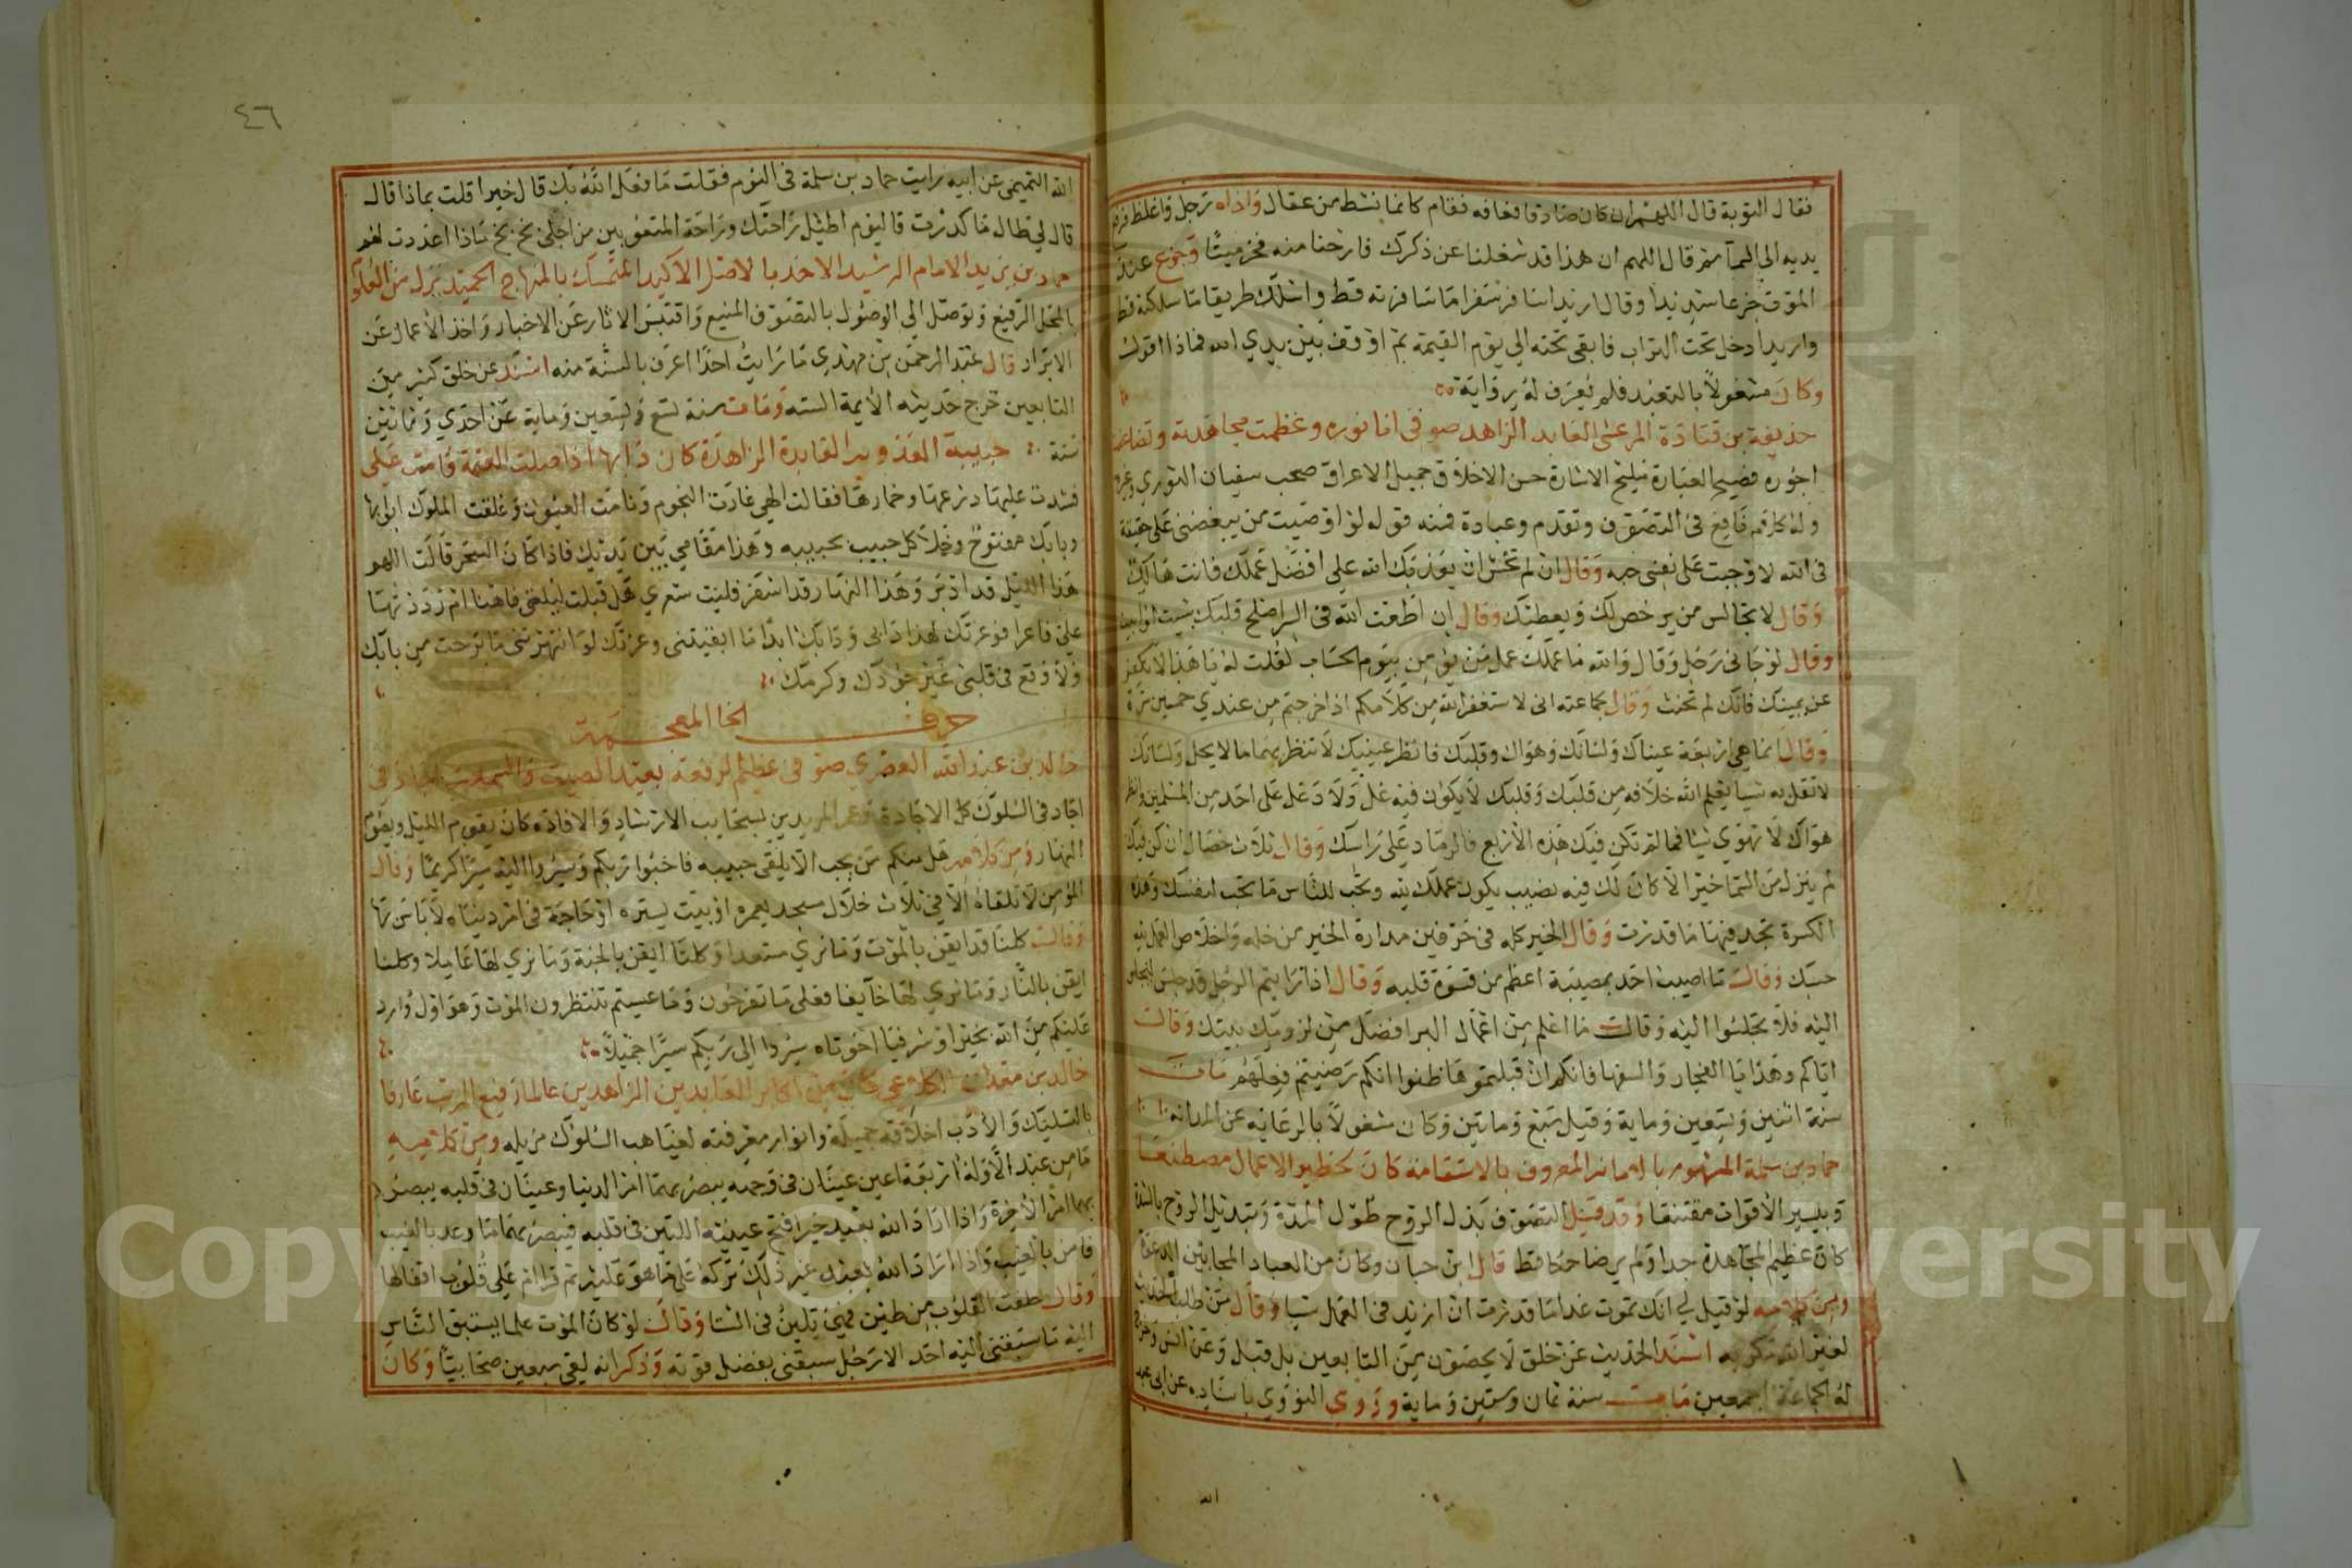 فقال التوبة قال اللهم ان كان صادقا فعافه فقام كانما نشط من عقال واذاه رجل واغلظ فرفع
يديه الى السما ثم قال اللهم ان هذا قد شغلنا عن ذكرك فارحنا منه فخر ميتا وجزع عند
الموت جزعا شديدا وقال اريد اسافر سفرا ما سافرته قط واسلك طريقا ما سلكته قط
واريد ادخل تحت التراب فابقى تحته الي يوم القيمة ثم اوقف بين يدي الله فماذا اقول
وكان مشغولا بالتعبد فلم يعرف له رواية
حذيفة بن قتادة المرعشي العابد الزاهد صوفى اضا نوره وعظمت مجاهدته وتضاعف
اجوره فصيح العبارة مليح الاشارة حسن الاخلاق جميل الاعراق صحب سفيان الثوري وغيره
وله كلام نافع في التصوف وتقدم وعبادة فمنه قوله لو اصبت من يبغضني على حقيقة
في الله لاوجبت على نفسي حبه وقال ان لم تخش ان يعذبك الله علي افضل عملك فانت هالك
وقال لا تجالس من يرخص لك ويعطيك وقال ان اطعت الله في السر اصلح قلبك شيت او ابيت
وقال لو جاني رجل وقال والله ما عملك عمل من يومن بيوم الحساب لقلت له يا هذا لا تكفر
عن يمينك فانك لم تحنث وقال لجماعته اني لاستغفر الله من كلامكم اذا خرجتم من عندي خمسين مرة
وقال انما هي اربعة عيناك ولسانك وهواك وقلبك فانظر عينيك لا تنظر بهما ما لا يحل ولسانك
لا تقل به شيا يعلم الله خلافه من قلبك وقلبك لا يكون فيه غل ولا دغل على احد من المسلمين وانظر
هواك لا تهوي شيا فما لم تكن فيك هذه الاربع فالرماد على راسك وقال ثلاث خصال ان كن فيك
لم ينزل من السما خير الا كان لك فيه نصيب يكون عملك لله وتحب للناس ما تحب لنفسك وهذه
الكسرة تجد فيها ما قدرت وقال الخير كله في حرفين مداراة الخبز من حله واخلاص العمل لله
حسبك وقال ما اصيب احد بمصيبة اعظم من قسوة قلبه وقال اذا رايتم الرجل قد جلس ليجلس
اليه فلا تجلسوا اليه وقال ما اعلم من اعمال البر افضل من لزومك بيتك وقال
اياكم وهدايا الفجار والسفها فانكم ان قبلتموها ظنوا انكم رضيتم فعلهم مات
سنة اثنين وتسعين وماية وقيل سبع ومايتين وكان مشغولا بالرعاية عن الرواية
حماد بن سلمة المشهور بالامانة المعروف بالاستقامة كان لخطير الاعمال مصطنعا
وبيسير الاقوات مقتنعا وقد قيل التصوف بذل الروح طول المدة وتبديل الروح بالشدة
كان عظيم المجاهدة جدا ولم ير ضاحكا قط قال ابن حبان وكان من العباد المجابين الدعوة
ومن كلامه لو قيل لي انك تموت غدا ما قدرت ان ازيد في العمل شيا وقال من طلب الحديث
لغير الله مكر به اسند الحديث عن خلق لا يحصون من التابعين بل قبل وعن انس وخرج
له الجماعة اجمعين مات سنة ثمان وستين وماية وروي النووي باسناده عن ابي عبد
الله
٤٦
الله التميمي عن ابيه رايت حماد بن سلمة في النوم فقلت ما فعل الله بك قال خيرا قلت بماذا قال
قال لي طال ما كدرت فاليوم اطيل راحتك وراحة المتعوبين من اجلي بخ بخ ماذا اعددت لهم
حماد بن زيد الامام الرشيد الاخذ بالاصل الاكيد المتمسك بالمنهاج الحميد نزل من العلو
بالمحل الرفيع وتوصل الي الوصول بالتصوف المنيع واقتبس الاثار عن الاخبار واخذ الاعمال عن
الابرار قال عبد الرحمن بن مهدي ما رايت احدا اعرف بالسنة منه اسند عن خلق كثير من
التابعين خرج حديثه الايمة الستة ومات سنة تسع وسبعين وماية عن احدي وثمانين
سنة حبيبة العدوية العابدة الزاهدة كان دابها اذا صلت العتمة قامت على
فشدت عليها درعها وخمارها فقالت الهي غارت النجوم ونامت العيون وغلقت الملوك ابوابها
وبابك مفتوح وخلا كل حبيب بحبيبه وهذا مقامي بين يديك فاذا كان السحر قالت اللهم
هذا الليل قد ادبر وهذا النهار قد اسفر فليت شعري هل قبلت ليلتي فاهنا ام رددتها
علي فاعزا فوعزتك لهذا دابي ودابك ابدا ما ابقيتني وعزتك لو انتهرتني ما برحت من بابك
ولا وقع في قلبي غير جودك وكرمك
حرف الخا المعجمة
خالد بن عبد الله العصري صوفى عظيم الرفعة بعيد الصيت والسمعة
اجاد في السلوك كل الاجادة وعم المريدين بسحايب الارشاد والافادة كان يقوم الليل ويصوم
النهار ومن كلامه هل منكم من يحب الا يلقى حبيبه فاحبوا ربكم وسيروا اليه سيرا كريما وقال
المؤمن لا تلقاه الا في ثلاث خلال مسجد يعمره او بيت يستره او حاجة في امر دنياه لا باس بها
وقال كلنا قد ايقن بالموت وما نري مستعدا وكلنا ايقن بالجنة وما نري لها عاملا وكلنا
ايقن بالنار وما نري لها خايفا فعلى ما تفرحون وما عسيتم تنتظرون الموت وهو اول وارد
عليكم من الله بخير او شر فيا اخوتاه سيروا الى ربكم سيرا جميلا
خالد بن معدان الكلاعي كان من اكابر العابدين الزاهدين عالما رفيع المرتب عارفا
بالتسليك والادب اخلاقه جميلة وانوار معرفته لغياهب السلوك مزيله ومن كلامه
ما من عبد الا وله اربعة اعين عينان في وجهه يبصر بهما امر الدنيا وعينان في قلبه يبصر
بهما امر الاخرة واذا اراد الله بعبد خيرا فتح عينيه اللتين في قلبه فيبصر بهما ما وعد بالغيب
فامن بالغيب واذا اراد الله بعبد غير ذلك تركه على ما هو عليه ثم قرا ام على قلوب اقفالها
وقال خلقت القلوب من طين فهي تلين في الشتا وقال لو كان الموت علما يستبق الناس
اليه ما سبقني اليه احد الا رجل سبقني بفضل قوته وذكر انه لقي سبعين صحابيا وكان
Copyright © King Saud University